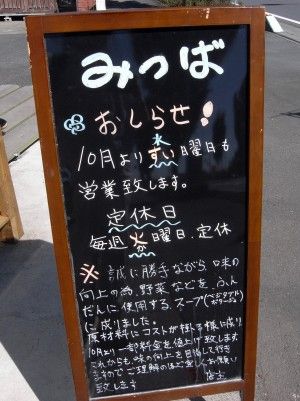 みつば
おしらせ!
10月よりすい曜日も
水
営業致します。
定休日
毎週火曜日、定休
か
※誠に勝手ながら、味の
向上の為、野菜などを、ふん
だんに使用するスープ(ベジタブル
に成りました。
原材料にコストが掛る様に成り
10月より一部料金を値上げ致します
これからも味の向上を目指して行き
ますので ご理解のほどをしてお願い
致します 店主